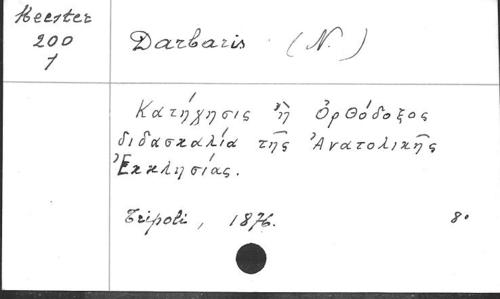 Meester
200
1
Darbaris (N.)
Κατήχησις ἢ Ὀρθόδοξος
διδασκαλία τῆς Ἀνατολικῆς
Ἐκκλησίας.
Tripoli, 1876. 8°